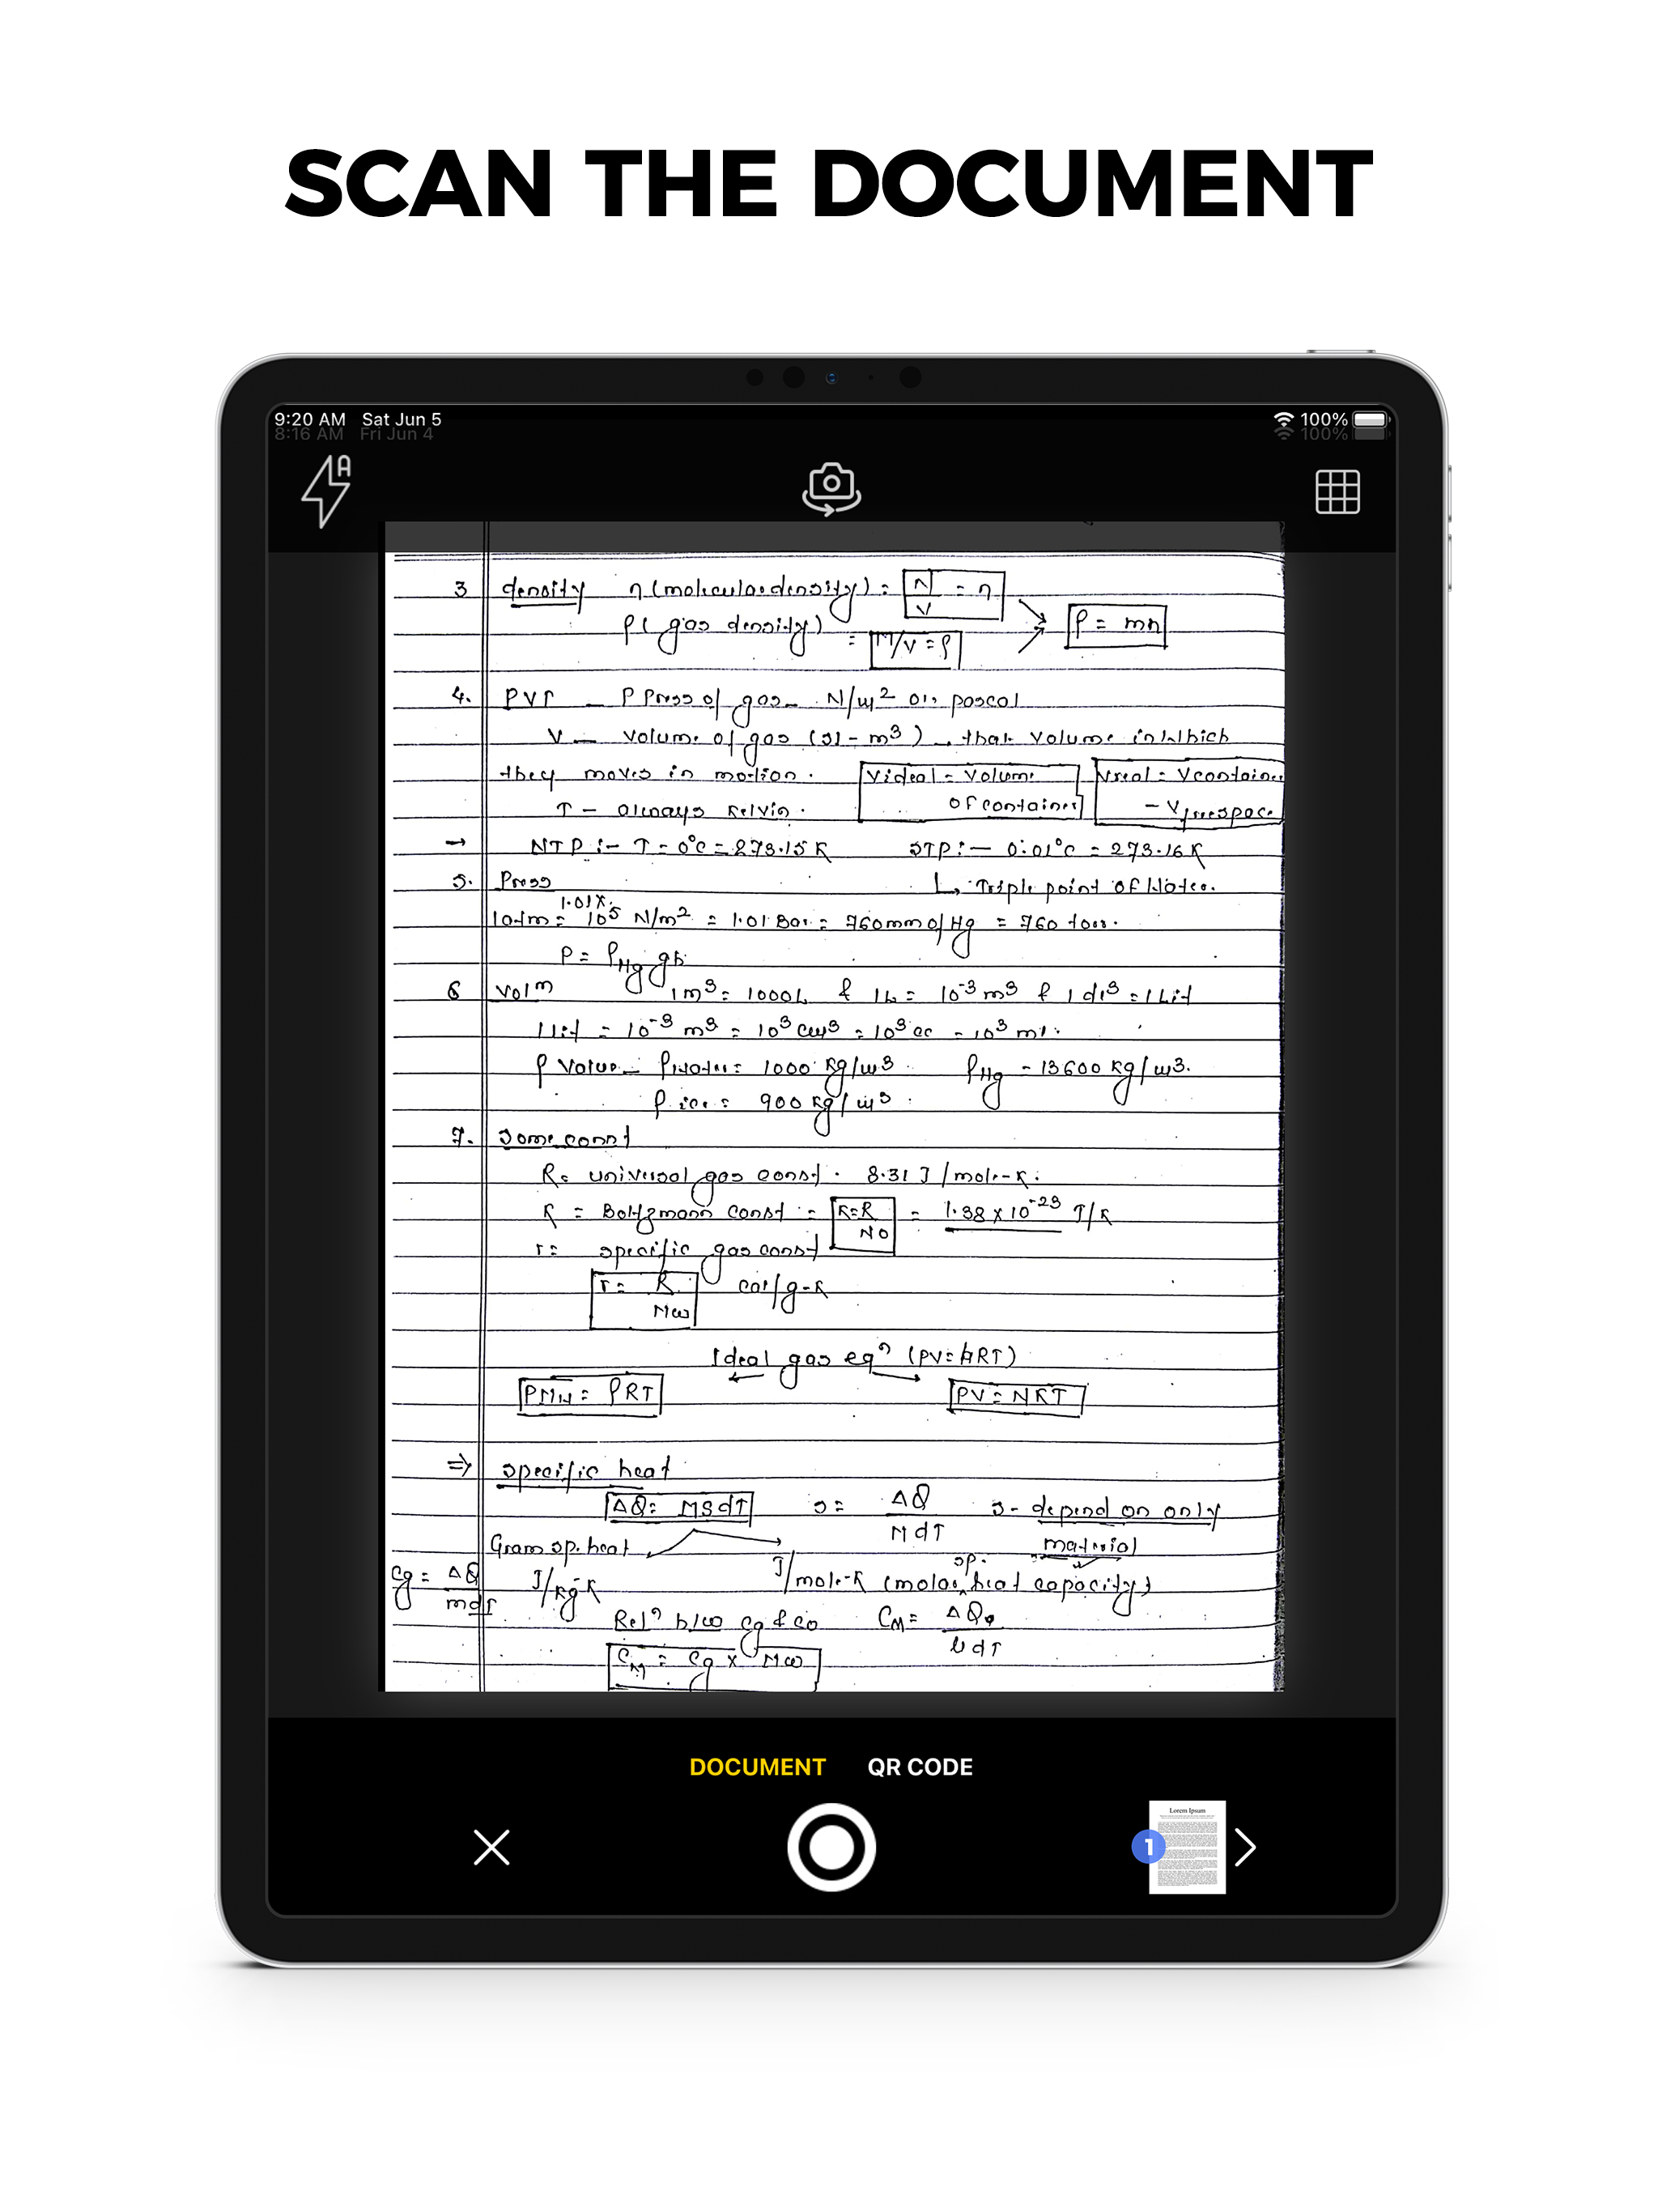 SCAN THE DOCUMENT
9:20 AM Sat Jun 5 100%
8:16 AM Fri Jun 4 100%
A
3 density η (molecular density) = N/V = η
ρ ( gas density) = M/V = ρ ρ = mn
4. PVT — P Press of gas — N/m² or pascal
V — Volume of gas (SI - m³) — that volume in which
they moves in motion. Videal = Volume of container Vreal = Vcontainer - Vfreespace
T — always Kelvin.
→ NTP :- T = 0°C = 273.15 K STP :- 0.01°C = 273.16 K
5. Press ↳ Triple point of Water.
1 atm = 1.01 x 10⁵ N/m² = 1.01 Bar = 760 mm of Hg = 760 torr.
P = ρHg gh
6 Volᵐ 1 m³ = 1000 L & 1 L = 10⁻³ m³ & 1 di³ = 1 Lit
1 Lit = 10⁻³ m³ = 10³ cm³ = 10³ cc = 10³ ml.
ρ Value — ρwater = 1000 kg/m³ ρHg = 13600 kg/m³.
ρice = 900 kg/m³.
7. Some const
R = universal gas const. 8.31 J/mole-K.
K = Boltzmann const = K = R/N0 = 1.38 x 10⁻²³ J/K
r = specific gas const
r = R/Mw cal/g-K
Ideal gas eqⁿ (PV = nRT)
PMw = ρRT PV = NKT
⇒ specific heat
ΔQ = MSdT s = ΔQ/MdT s - depend on only
Gram sp. heat material
Cg = ΔQ/mdT J/kg-K J/mole-K (molar sp. heat capacity)
Relⁿ b/w Cg & Co CM = ΔQ/μdT
CM = Cg x Mw
DOCUMENT QR CODE
Lorem Ipsum
1